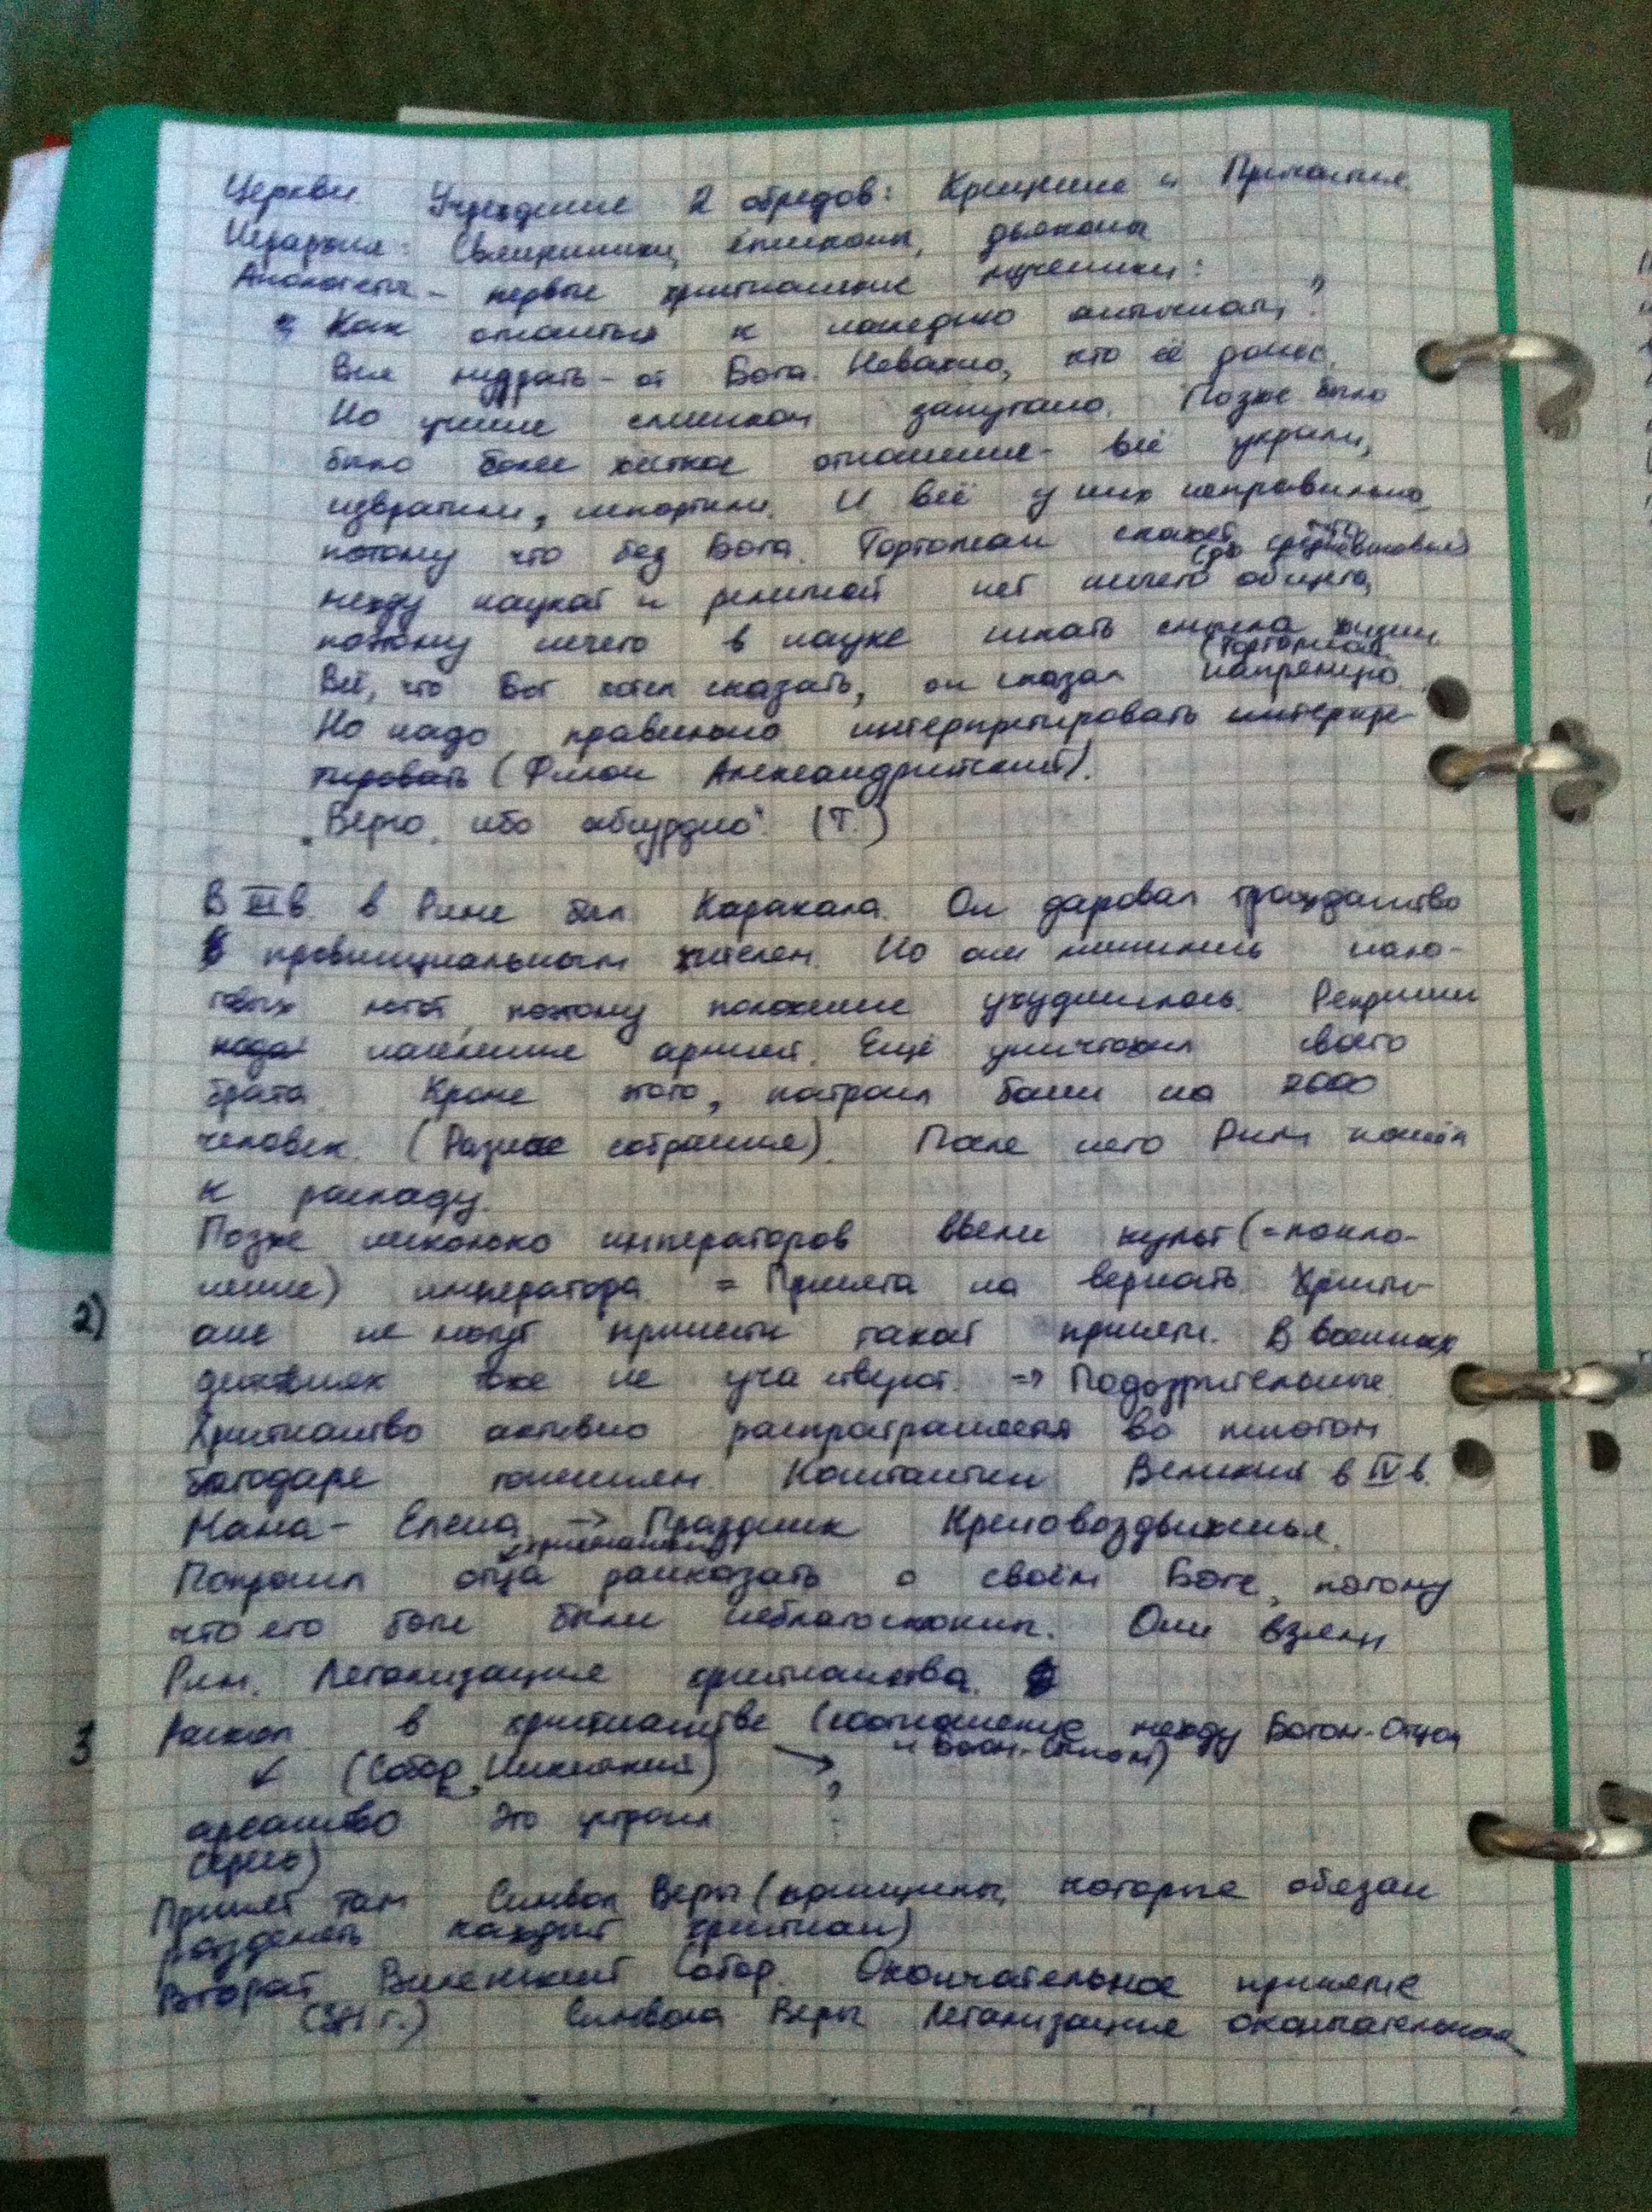 Церкви. Учреждение 2 обрядов: Крещение и Причастие.
Иерархия: Священники, епископы, дьяконы
Апологеты - первые христианские мученики:
Как относиться к наследию античности?
Вся мудрость - от Бога. Неважно, кто её донёс.
Но учение слишком запутано. Позже было
было более жёсткое отношение - всё украли,
извратили, испортили. И всё у них неправильно,
потому что без Бога. Тортолиан скажет, что (до средневековья)
между наукой и религией нет ничего общего,
поэтому нечего в науке искать смысла жизни
(Тортолиан).
Всё, что Бог хотел сказать, он сказал напрямую.
Но надо правильно интерпретировать интерпре-
тировать (Филон Александрийский).
"Верую, ибо абсурдно". (Т.)
В III в. в Риме был Каракала. Он даровал гражданство
провинциальным жителям. Но они лишились нало-
говых льгот, поэтому положение ухудшилось. Репрессии
населения армией. Ещё уничтожил своего
брата. Кроме этого, построил бани на 2000
человек. (Разные собрания). После него Рим пошёл
к распаду.
Позже несколько императоров ввели культ (=покло-
нение) императора. = Присяга на верность. Христи-
ане не могут принести такой присяги. В военных
действиях тоже не участвуют. => Подозрительные.
Христианство активно распространяется во многом
благодаря гонениям. Константин Великий в IV в.
Мама - Елена -> Праздник Крестовоздвиженья.
Попросил отца рассказать о своём Боге, потому
что его боги были неблагосклонны. Они взяли
Рим. Легализация христианства.
Раскол в христианстве (соотношение между Богом-Отцом
и Богом-Сыном)
(Собор Никейский)
арианство Это устроил ?
(ересь)
Принят там Символ Веры (принципы, которые обязан
разделять каждый христиан)
Второй Вселенский Собор. Окончательное принятие
(381 г.) Символа Веры Легализация окончательная